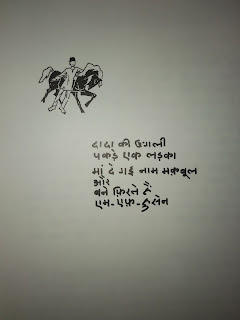 दादा की उंगली
पकड़े एक लड़का
मां दे गई नाम मक़बूल
और
बने फ़िरते हैं
एम-एफ़-हुसेन